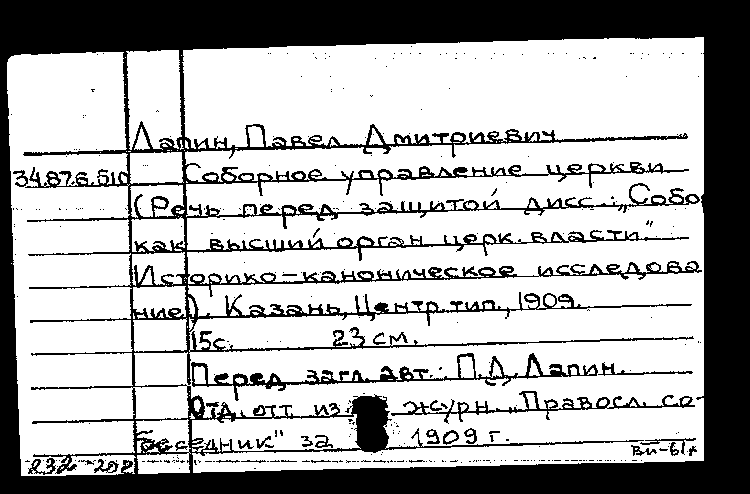 Лапин, Павел Дмитриевич
34.876.510 Соборное управление церкви
(Речь перед защитой дисс.: „Собо
как высший орган церк. власти."
Историко-каноническое исследова
ние). Казань, Центр. тип., 1909.
15с. 23 см.
Перед загл. авт.: П.Д. Лапин.
Отд. отт. из журн. „Правосл. со-
беседник" за 1909 г.
232